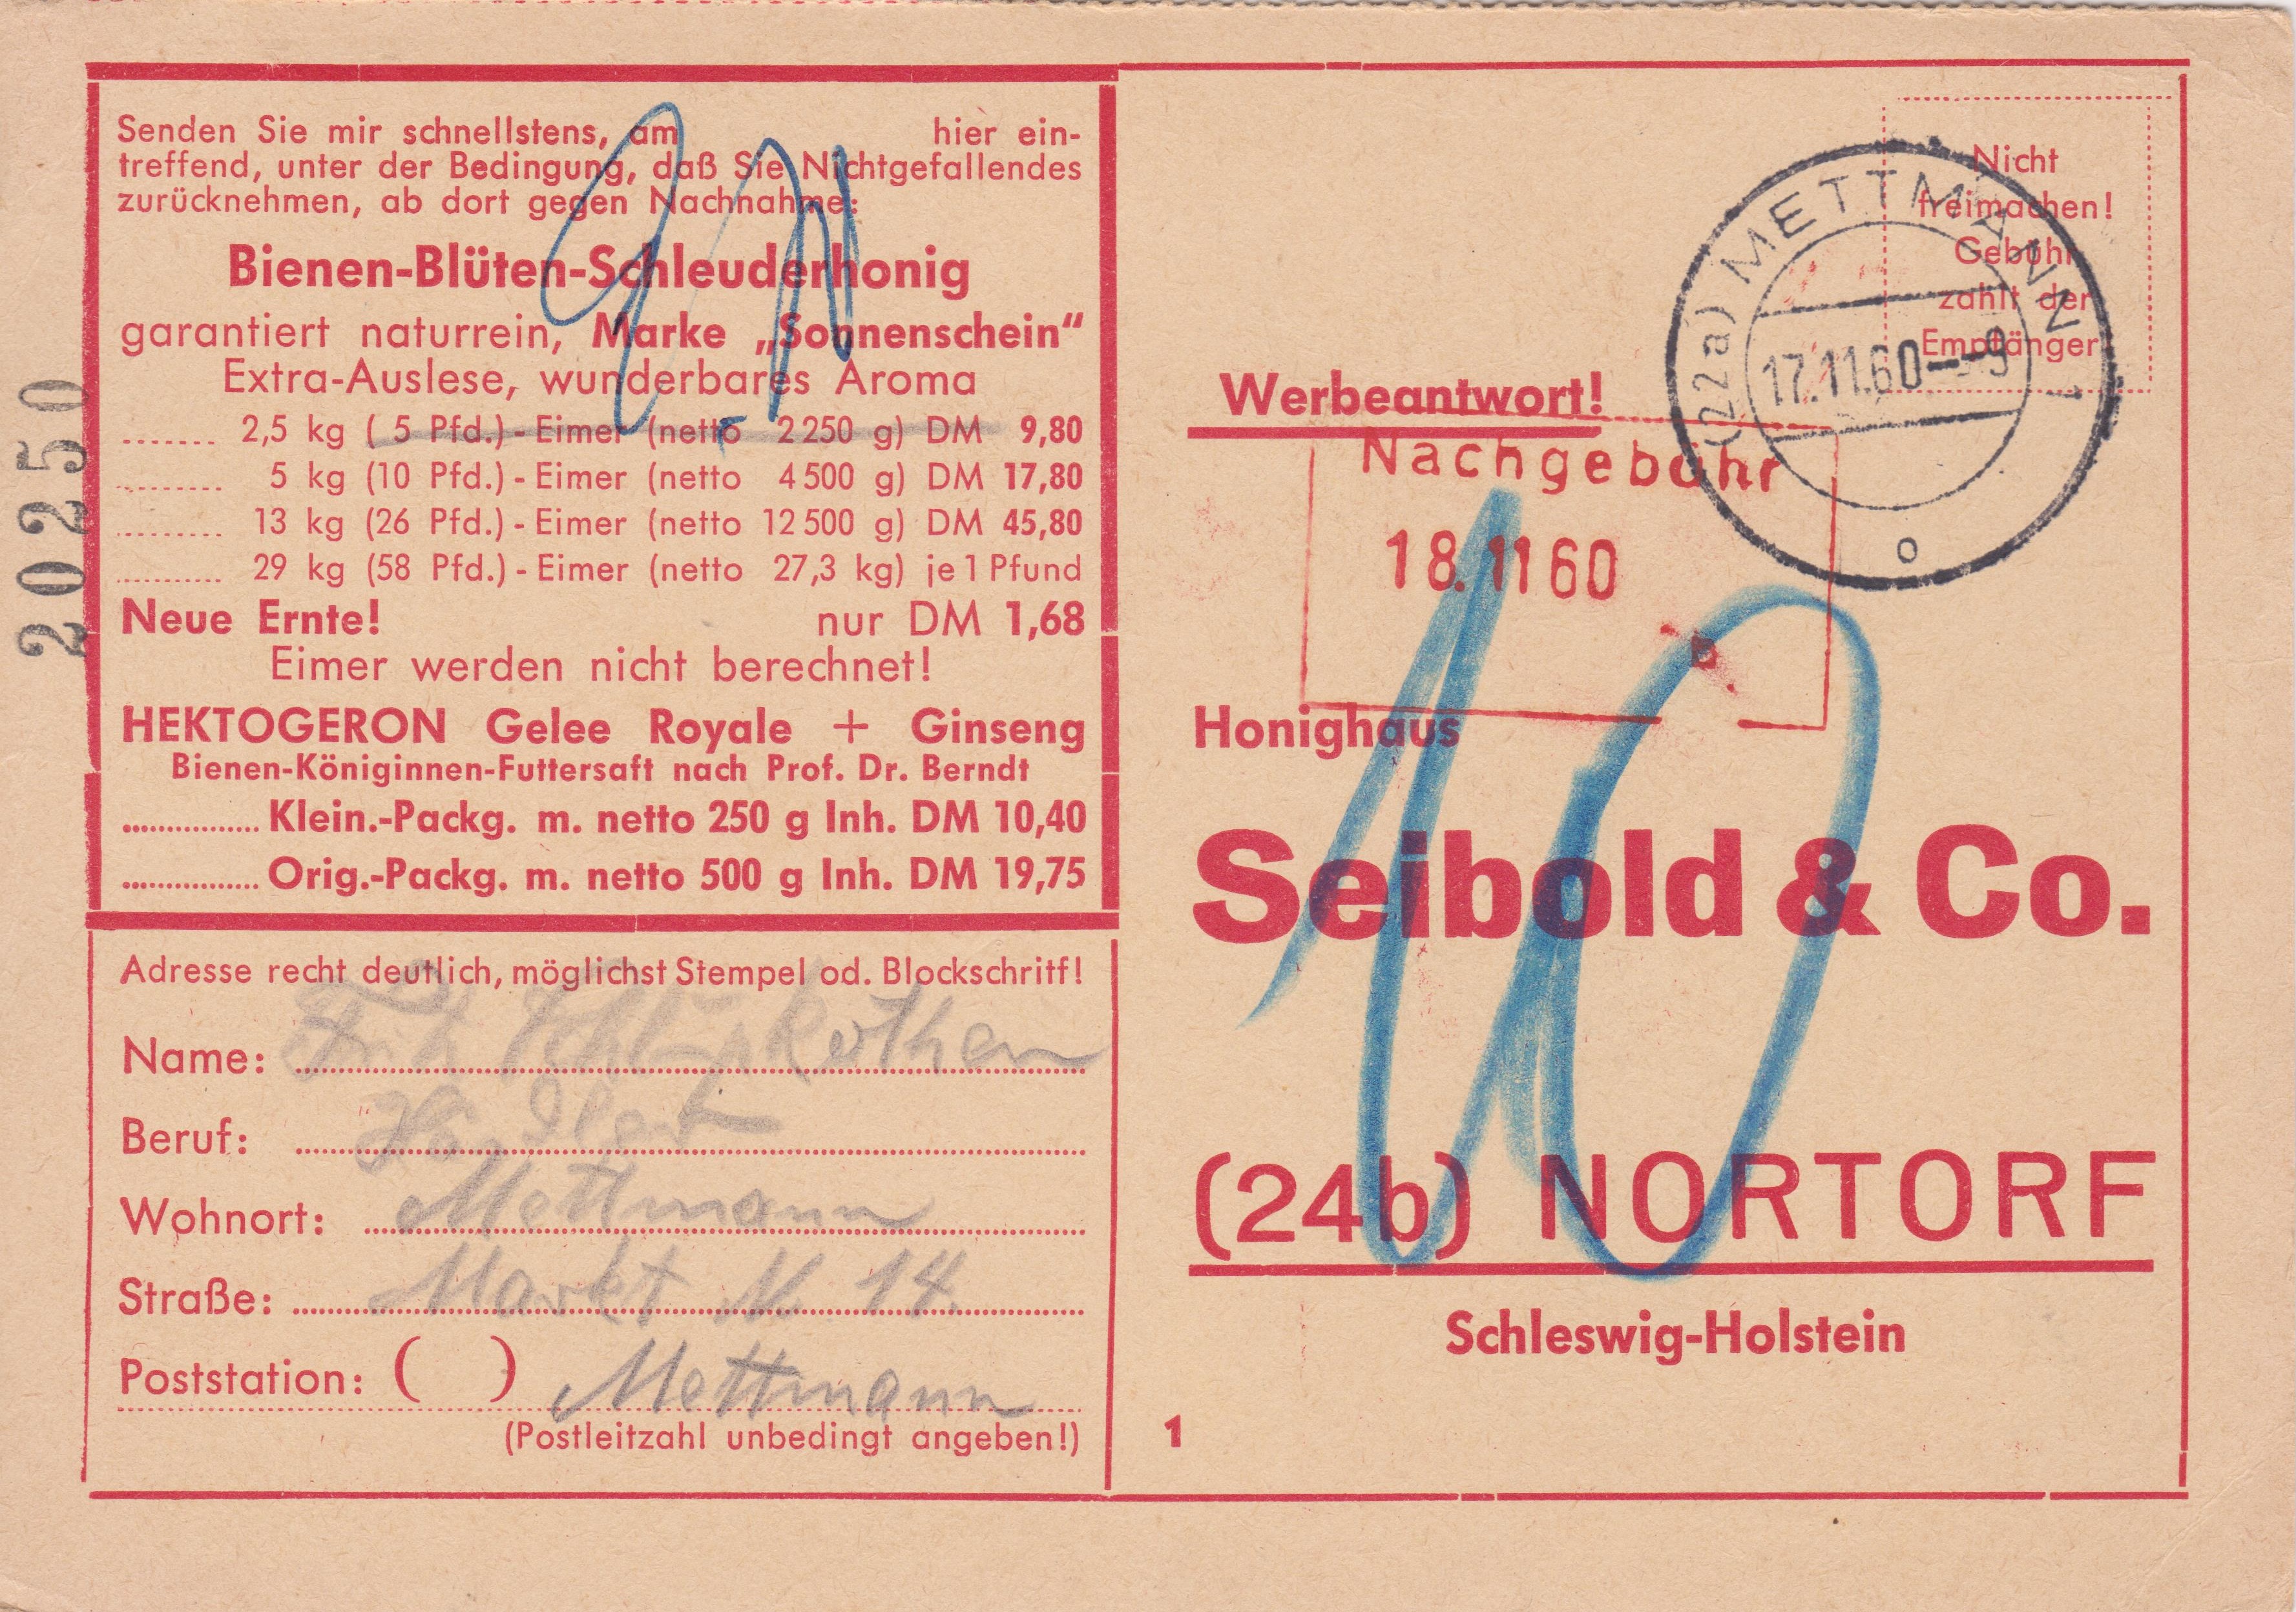 Senden Sie mir schnellstens, am hier ein-
treffend, unter der Bedingung, daß Sie Nichtgefallendes
zurücknehmen, ab dort gegen Nachnahme:
Bienen-Blüten-Schleuderhonig
garantiert naturrein, Marke „Sonnenschein“
Extra-Auslese, wunderbares Aroma
........ 2,5 kg ( 5 Pfd.) - Eimer (netto 2 250 g) DM 9,80
......... 5 kg (10 Pfd.) - Eimer (netto 4 500 g) DM 17,80
......... 13 kg (26 Pfd.) - Eimer (netto 12 500 g) DM 45,80
......... 29 kg (58 Pfd.) - Eimer (netto 27,3 kg) je 1 Pfund
Neue Ernte! nur DM 1,68
Eimer werden nicht berechnet!
HEKTOGERON Gelee Royale + Ginseng
Bienen-Königinnen-Futtersaft nach Prof. Dr. Berndt
................ Klein.-Packg. m. netto 250 g Inh. DM 10,40
................ Orig.-Packg. m. netto 500 g Inh. DM 19,75
20250
Adresse recht deutlich, möglichst Stempel od. Blockschritf!
Name:
Beruf:
Wohnort: Mettmann
Straße: Markt N 14
Poststation: ( ) Mettmann
(Postleitzahl unbedingt angeben!)
Nicht
freimachen!
Gebühr
zahlt der
Empfänger
(22a) METTMANN 1
17.11.60--9
o
Werbeantwort!
Nachgebühr
18.1160
10
Honighaus
Seibold & Co.
(24b) NORTORF
Schleswig-Holstein
1